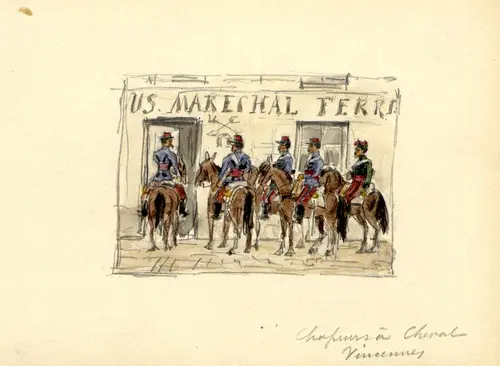 US. MARECHAL FERR
Chasseurs à Cheval
Vincennes